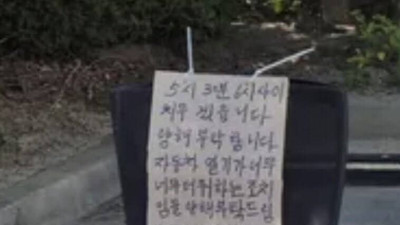 5시 30분 6시사이
치우 겠읍니다
양해 부탁 합니다.
자동차 열기가 너무
너무 더워 하는
임을 양해부탁드림